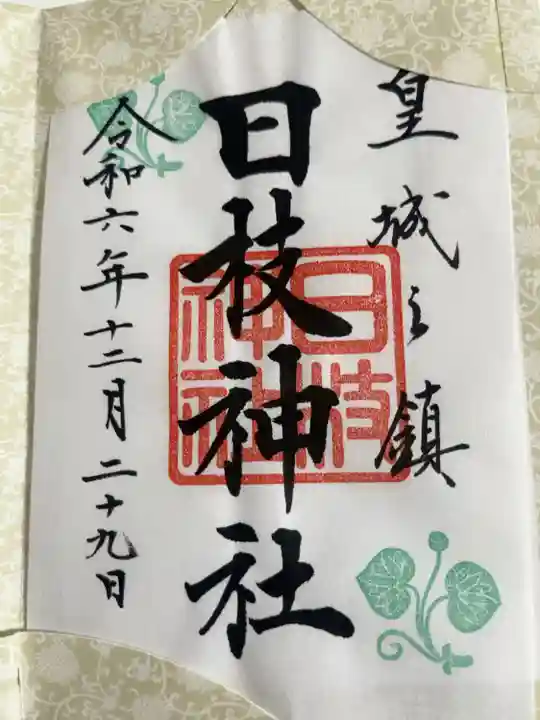 皇城之鎮
日枝神社
日枝
神社
令和六年十二月二十九日